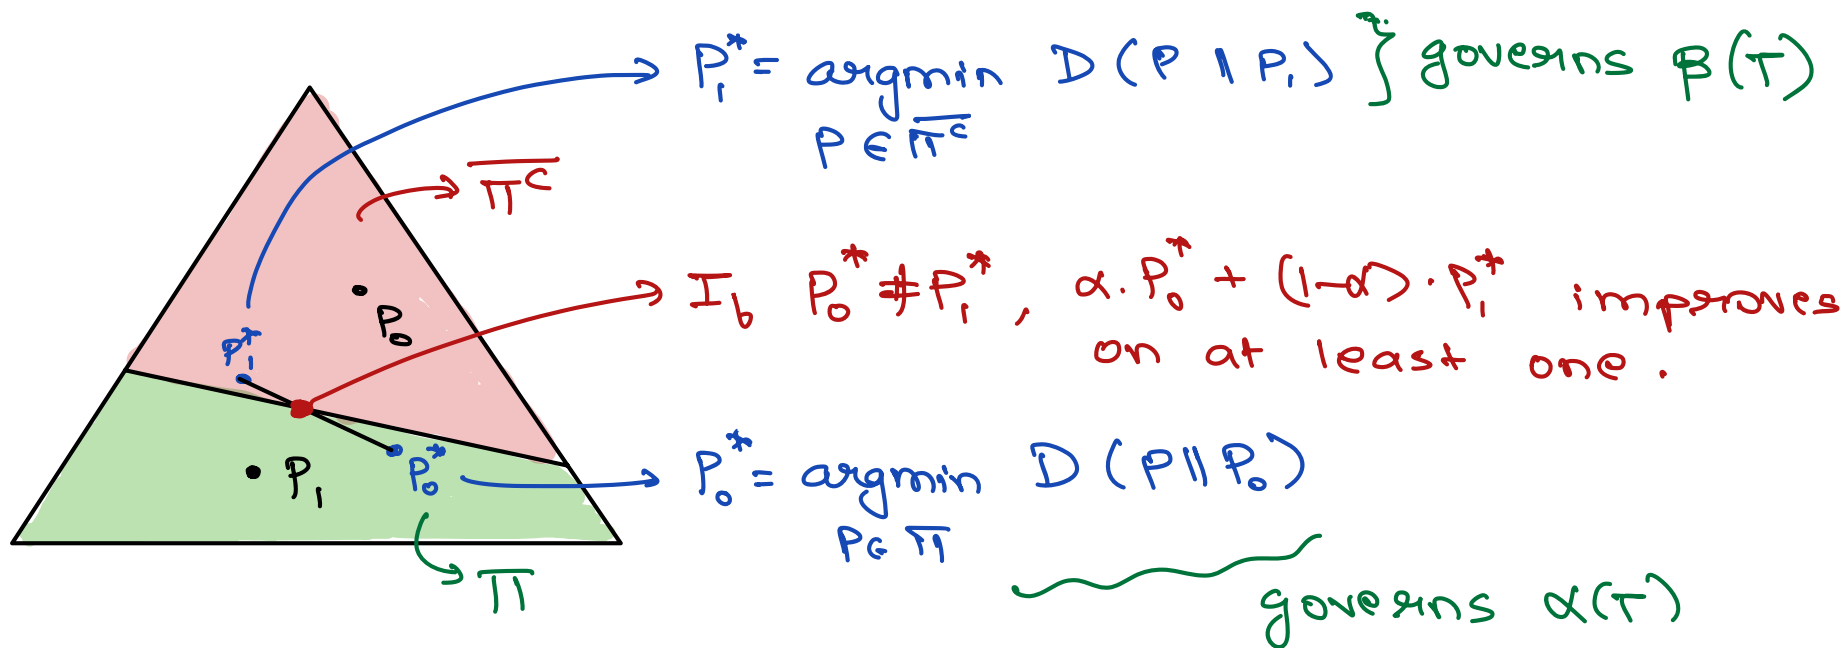 P₁* = argmin D(P ∥ P₁) } governs β(T)
P ∈ Π̅ᶜ
Π̅ᶜ
If P₀* ≠ P₁*, α. P₀* + (1-α) · P₁* improves
on at least one.
P₀
P₁*
P₀*
P₁
P₀* = argmin D(P∥P₀)
P∈ Π
Π
governs α(T)